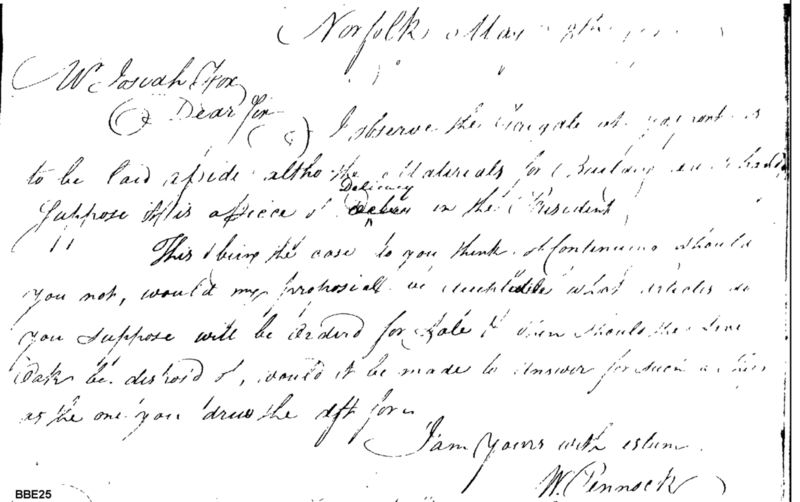 Norfolk May 9th
Mr Josiah Fox
Dear Sir
I observe the Frigate at your is
to be laid aside altho the Materials for Building
Suppose this a piece of Delicacy in the President
This being the case do you think Continuing should
you not, would my proposial be what articles do
you suppose will be orderd for Sale & then should the Live
Oak be disposd of, would it be made to answer for such a
as the one you drew the dft for
I am yours with esteem
W. Pennock
BBE25